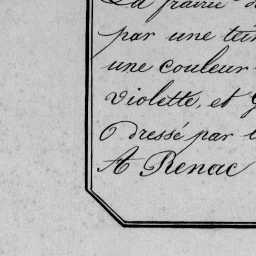 La prairie
par une tein
une couleur
violette, et
Dressé par
A Renac